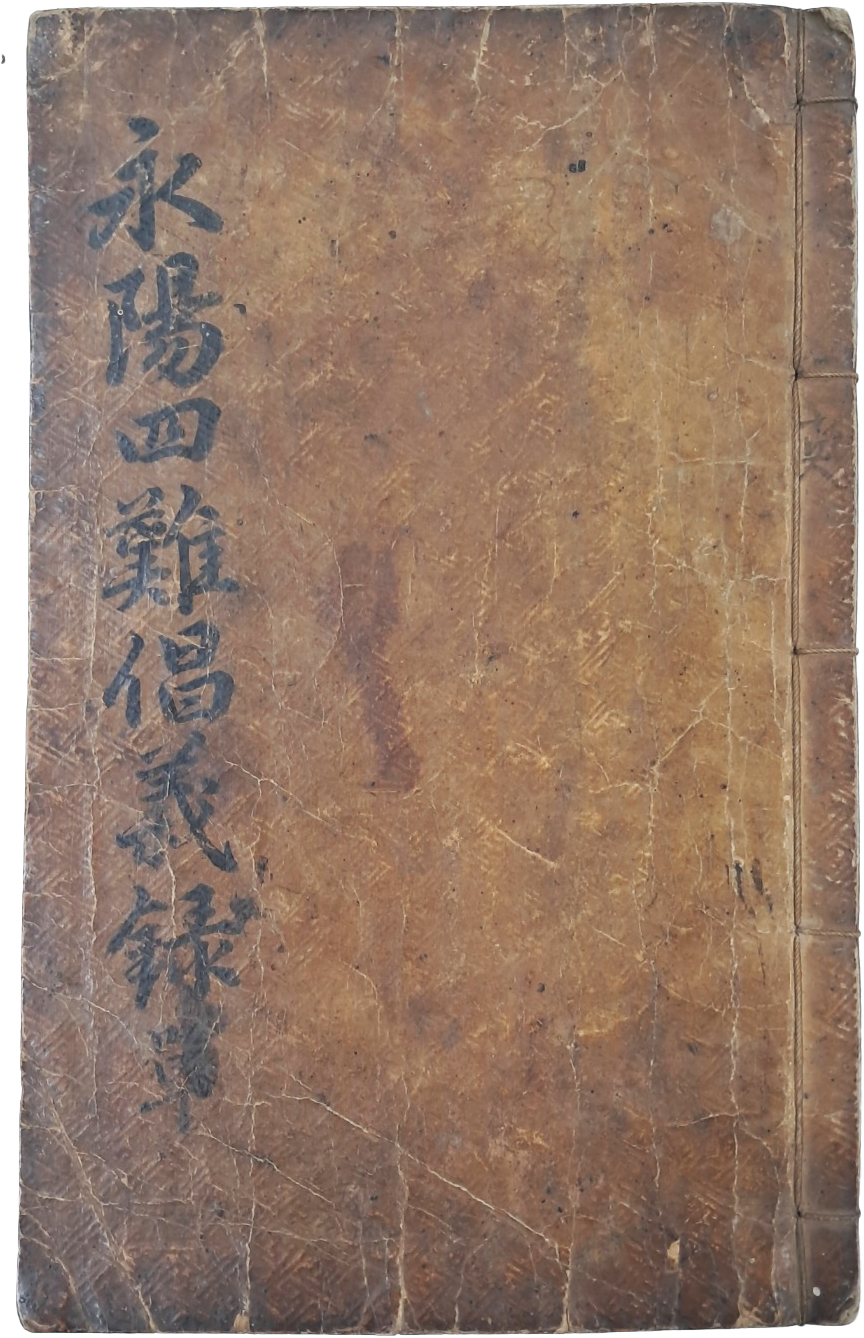 永陽四難倡義錄單